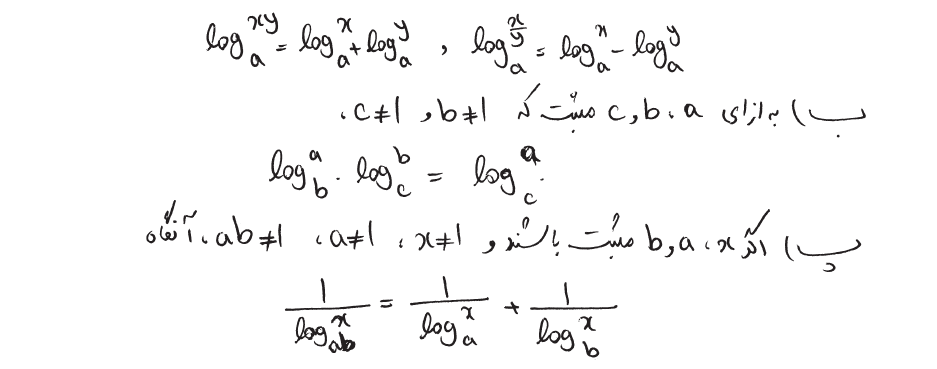 log_a^{xy} = log_a^x + log_a^y , log_a^{x/y} = log_a^x - log_a^y
ب) به ازای a، b و c مثبت که b≠1 و c≠1،
log_b^a . log_c^b = log_c^a .
پ) اگر x، a و b مثبت باشند و x≠1، a≠1، ab≠1، آنگاه
1/log_{ab}^x = 1/log_a^x + 1/log_b^x